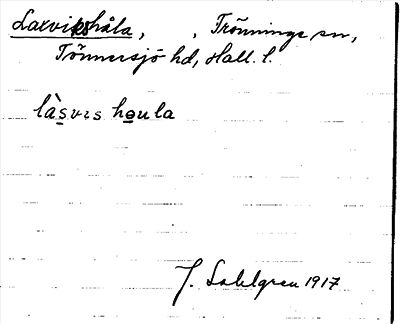 Laxvikshåla, , Trönninge sn,
Tönnersjö hd, Hall. l.
làsvıs houla
J. Sahlgren 1917